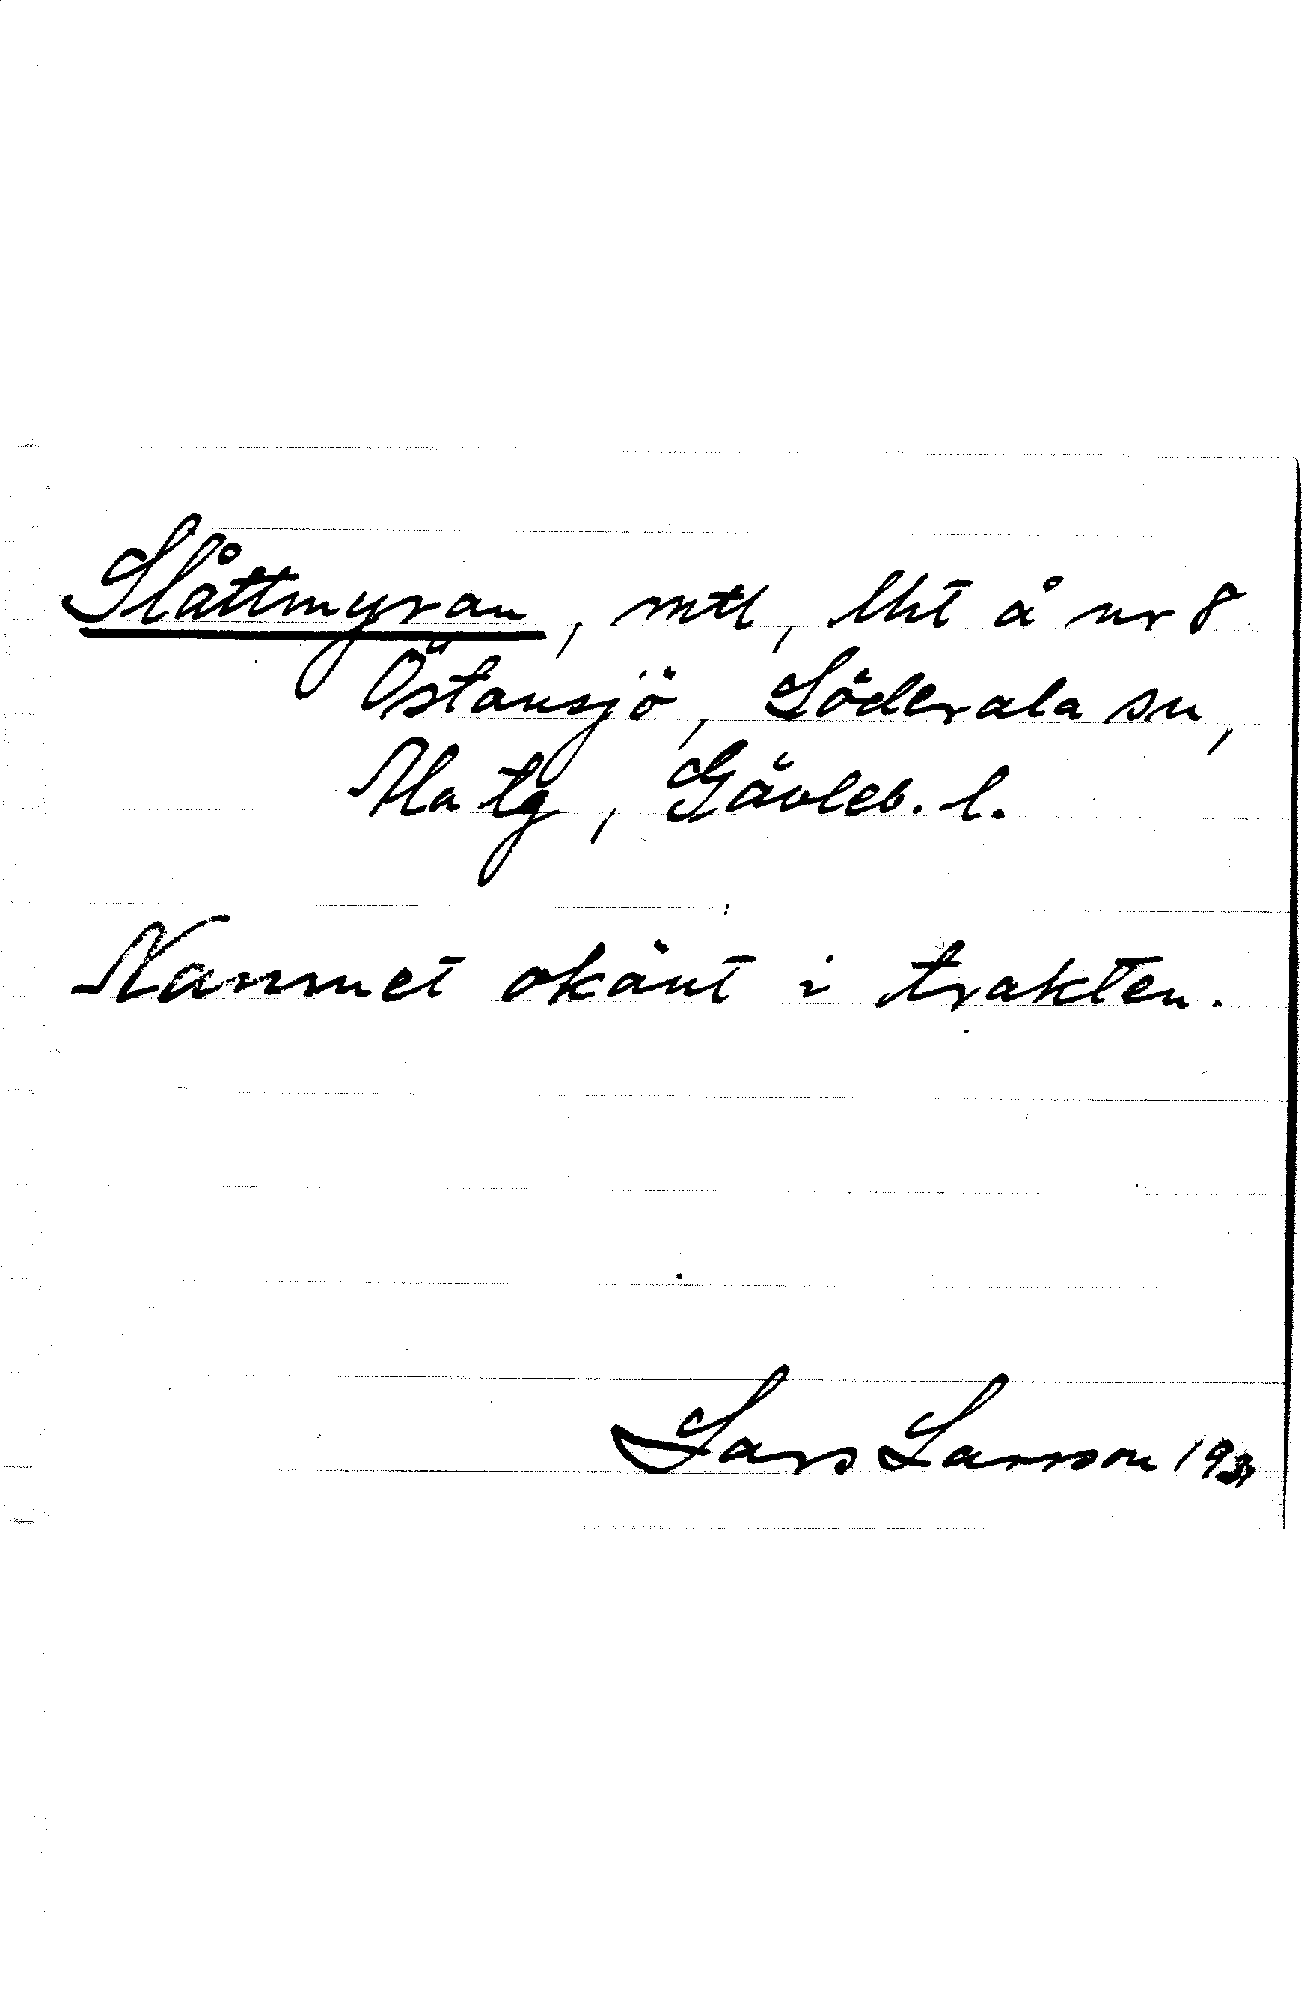 Slåttmyran, mtl, lht å nr 8
Östansjö, Söderala sn,
Ala tg, Gävleb. l.
Namnet okänt i trakten.
Lars Larsson